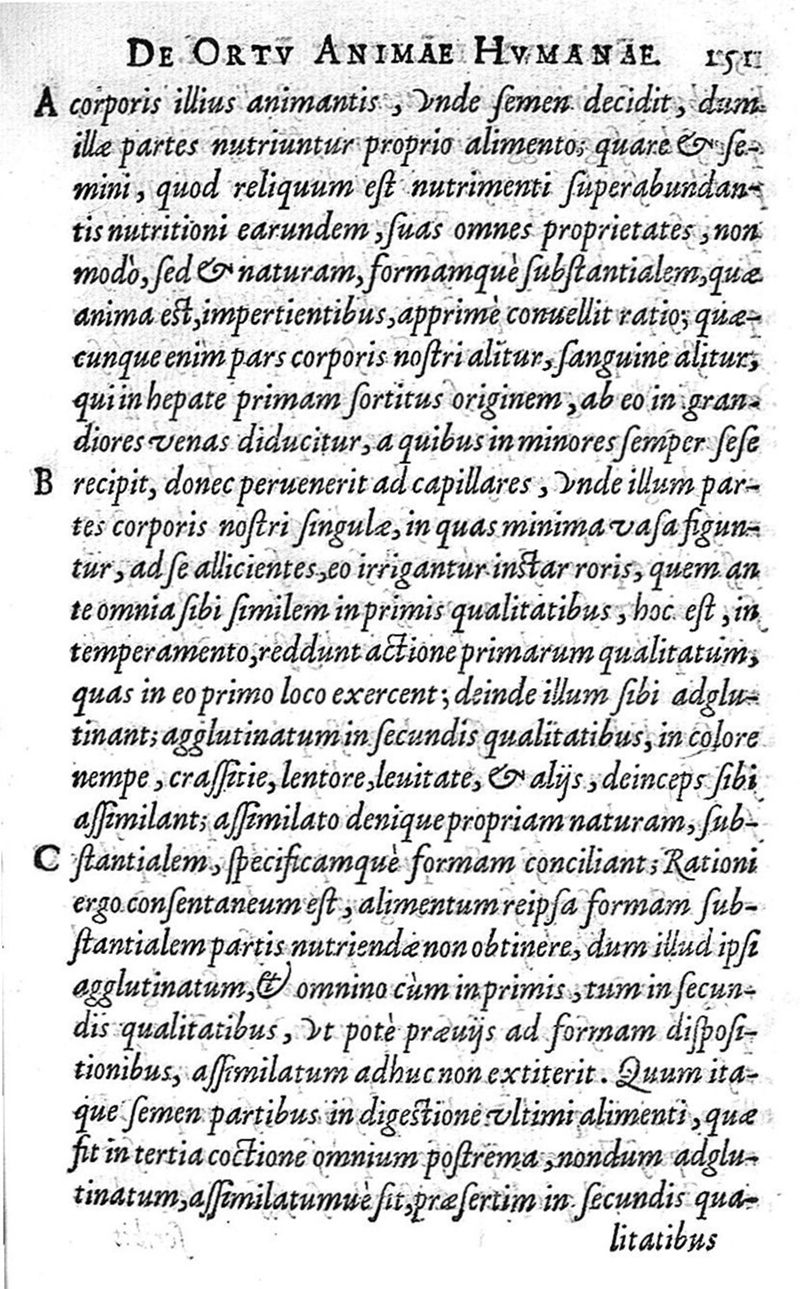 DE ORTV ANIMAE HVMANAE. 151
A corporis illius animantis, vnde semen decidit, dum
illæ partes nutriuntur proprio alimento; quare & se-
mini, quod reliquum est nutrimenti superabundan-
tis nutritioni earundem, suas omnes proprietates, non
modò, sed & naturam, formamquè substantialem, quæ
anima est, impertientibus, apprimè conuellit ratio; quæ-
cunque enim pars corporis nostri alitur, sanguine alitur,
qui in hepate primam sortitus originem, ab eo in gran-
diores venas diducitur, a quibus in minores semper sese
B recipit, donec peruenerit ad capillares, vnde illum par-
tes corporis nostri singulæ, in quas minima vasa figun-
tur, ad se allicientes, eo irrigantur instar roris, quem an
te omnia sibi similem in primis qualitatibus, hoc est, in
temperamento, reddunt actione primarum qualitatum,
quas in eo primo loco exercent; deinde illum sibi adglu-
tinant; agglutinatum in secundis qualitatibus, in colore
nempe, crassitie, lentore, leuitate, & alijs, deinceps sibi
assimilant; assimilato denique propriam naturam, sub-
C stantialem, specificamquè formam conciliant; Rationi
ergo consentaneum est, alimentum reipsa formam sub-
stantialem partis nutriendæ non obtinere, dum illud ipsi
agglutinatum, & omnino cùm in primis, tum in secun-
dis qualitatibus, vt potè præuijs ad formam disposi-
tionibus, assimilatum adhuc non extiterit. Quum ita-
que semen partibus in digestione vltimi alimenti, quæ
fit in tertia coctione omnium postrema, nondum adglu-
tinatum, assimilatumuè sit, præsertim in secundis qua-
litatibus